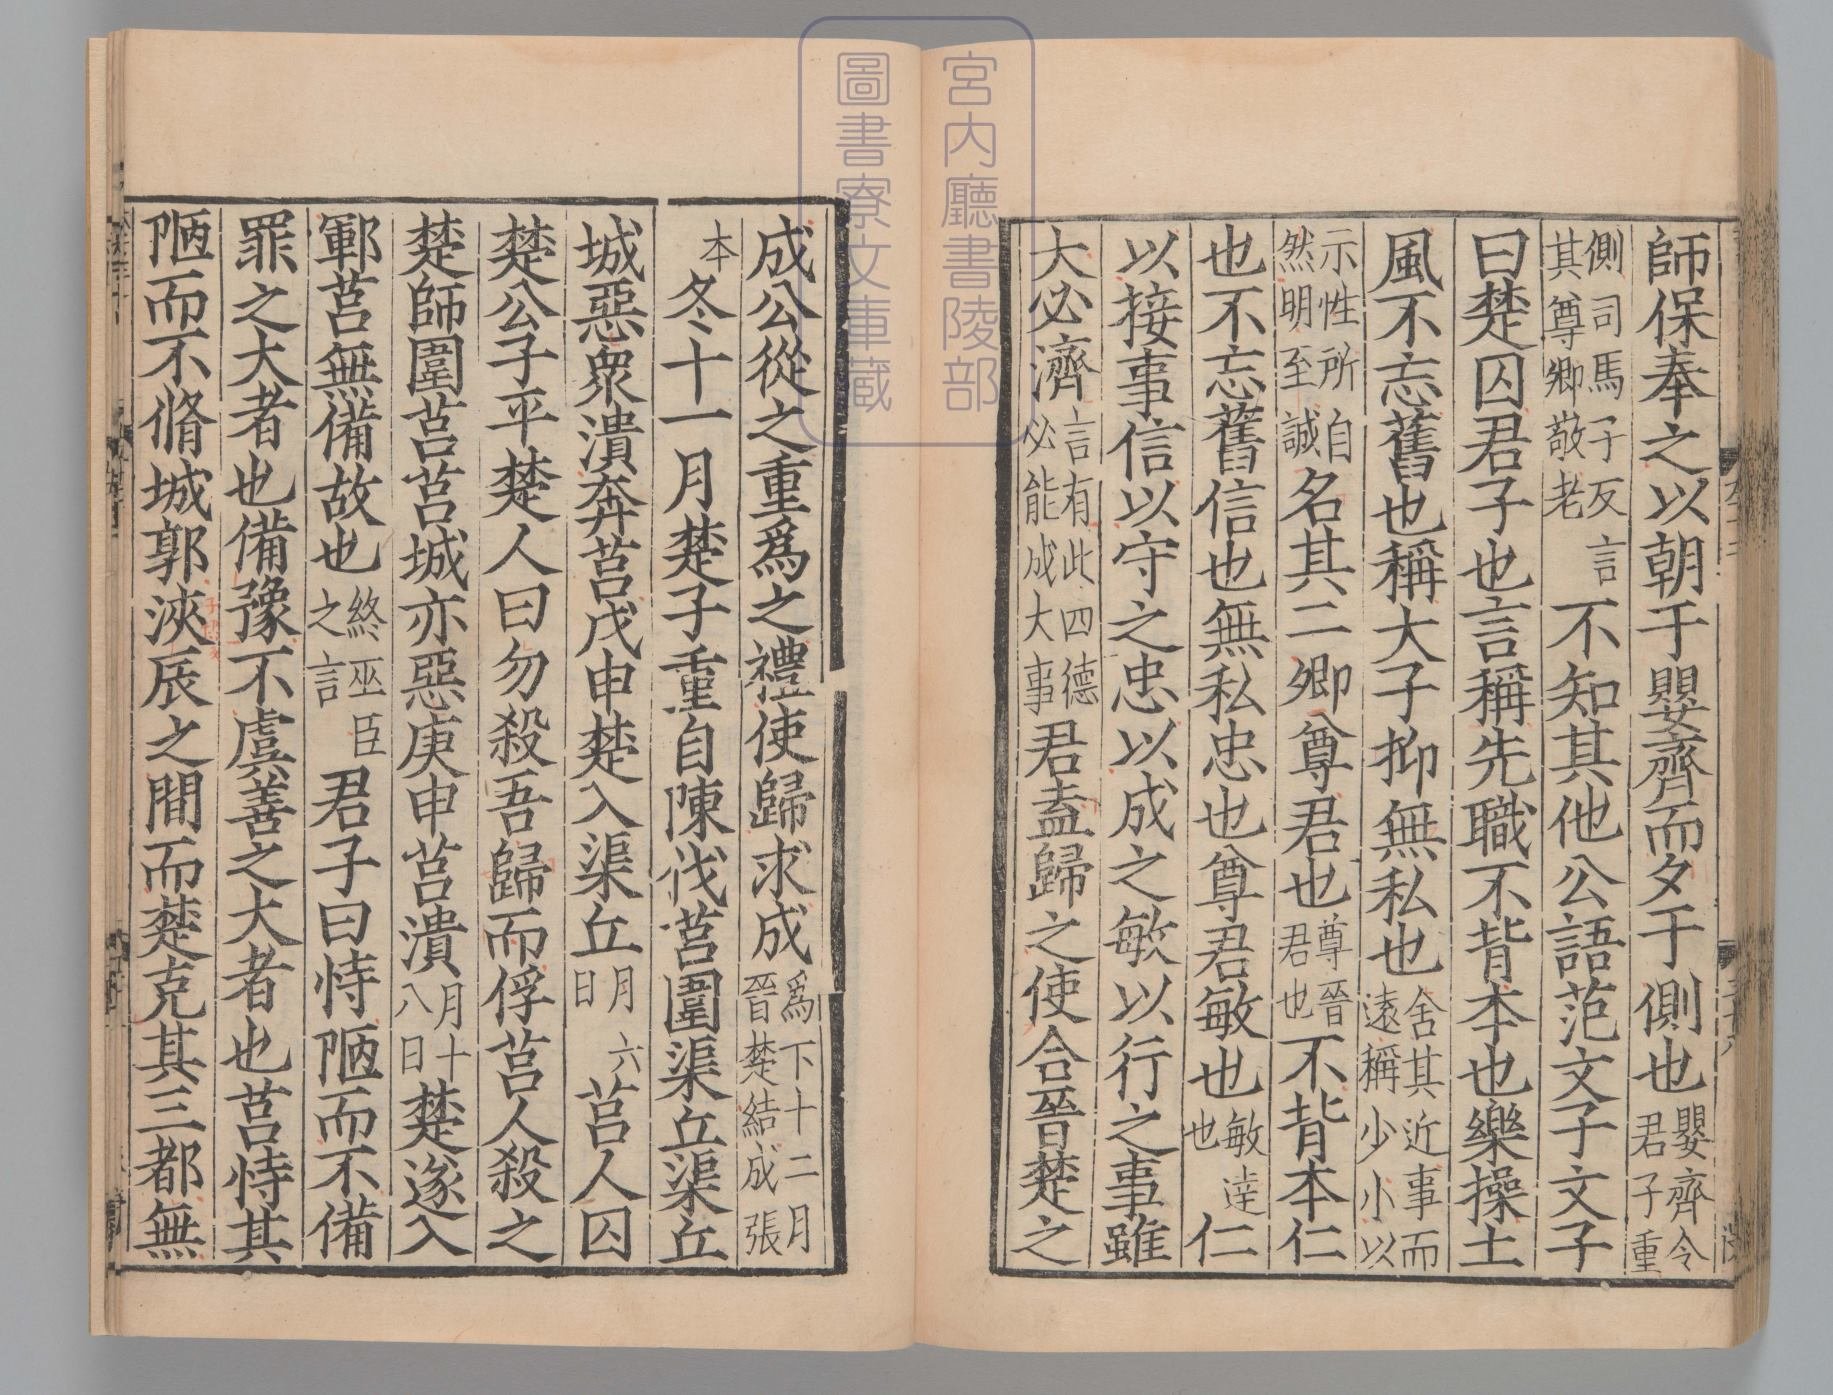 師保奉之以朝于嬰齊而夕于側也嬰齊令君子重
側司馬子反言其尊卿敬老不知其他公語范文子文子
曰楚囚君子也言稱先職不背本也樂操土
風不忘舊也稱大子抑無私也舍其近事而遠稱少小以
示性所自然明至誠名其二卿尊君也尊晉君也不背本仁
也不忘舊信也無私忠也尊君敏也敏達也仁
以接事信以守之忠以成之敏以行之事雖
大必濟言有此四德必能成大事君盍歸之使合晉楚之
成公從之重爲之禮使歸求成爲下十二月晉楚結成張
本冬十一月楚子重自陳伐莒圍渠丘渠丘
城惡衆潰奔莒戊申楚入渠丘月六日莒人囚
楚公子平楚人曰勿殺吾歸而俘莒人殺之
楚師圍莒莒城亦惡庚申莒潰月十八日楚遂入
鄆莒無備故也終巫臣之言君子曰恃陋而不備
罪之大者也備豫不虞善之大者也莒恃其
陋而不脩城郭浹辰之間而楚克其三都無
宮内廳書陵部
圖書寮文庫藏